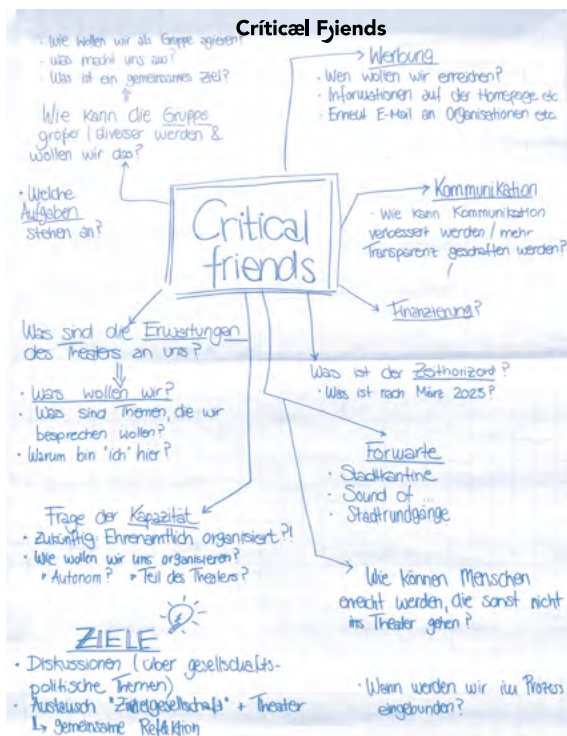 Critical Friends
· Wie wollen wir als Gruppe agieren?
· Was macht uns aus?
· Was ist ein gemeinsames Ziel?
Wie kann die Gruppe
größer / diverser werden &
wollen wir das?
· Welche
Aufgaben
stehen an?
Critical
friends
Werbung
· Wen wollen wir erreichen?
· Informationen auf der Homepage etc.
· Erneut E-Mail an Organisationen etc.
Kommunikation
· Wie kann Kommunikation
verbessert werden / mehr
Transparent geschaffen werden?
Finanzierung?
Was sind die Erwartungen
des Theaters an uns?
· Was wollen wir?
· Was sind Themen, die wir
besprechen wollen?
· Warum bin "ich" hier?
Was ist der Zeithorizont?
· Was ist nach März 2025?
Formate
· Stadtkantine
· Sound of ...
· Stadtrundgänge
Frage der Kapazität
· Zukünftig Ehrenamtlich organisiert?!
· Wie wollen wir uns organisieren?
Autonom? Teil des Theaters?
Wie können Menschen
erreicht werden, die sonst nicht
ins Theater gehen?
ZIELE
· Diskussionen (über gesellschafts-
politische Themen)
· Austausch "Zivielgesellschaft" + Theater
↳ gemeinsame Reflktion
· Wann werden wir im Prozess
eingebunden?